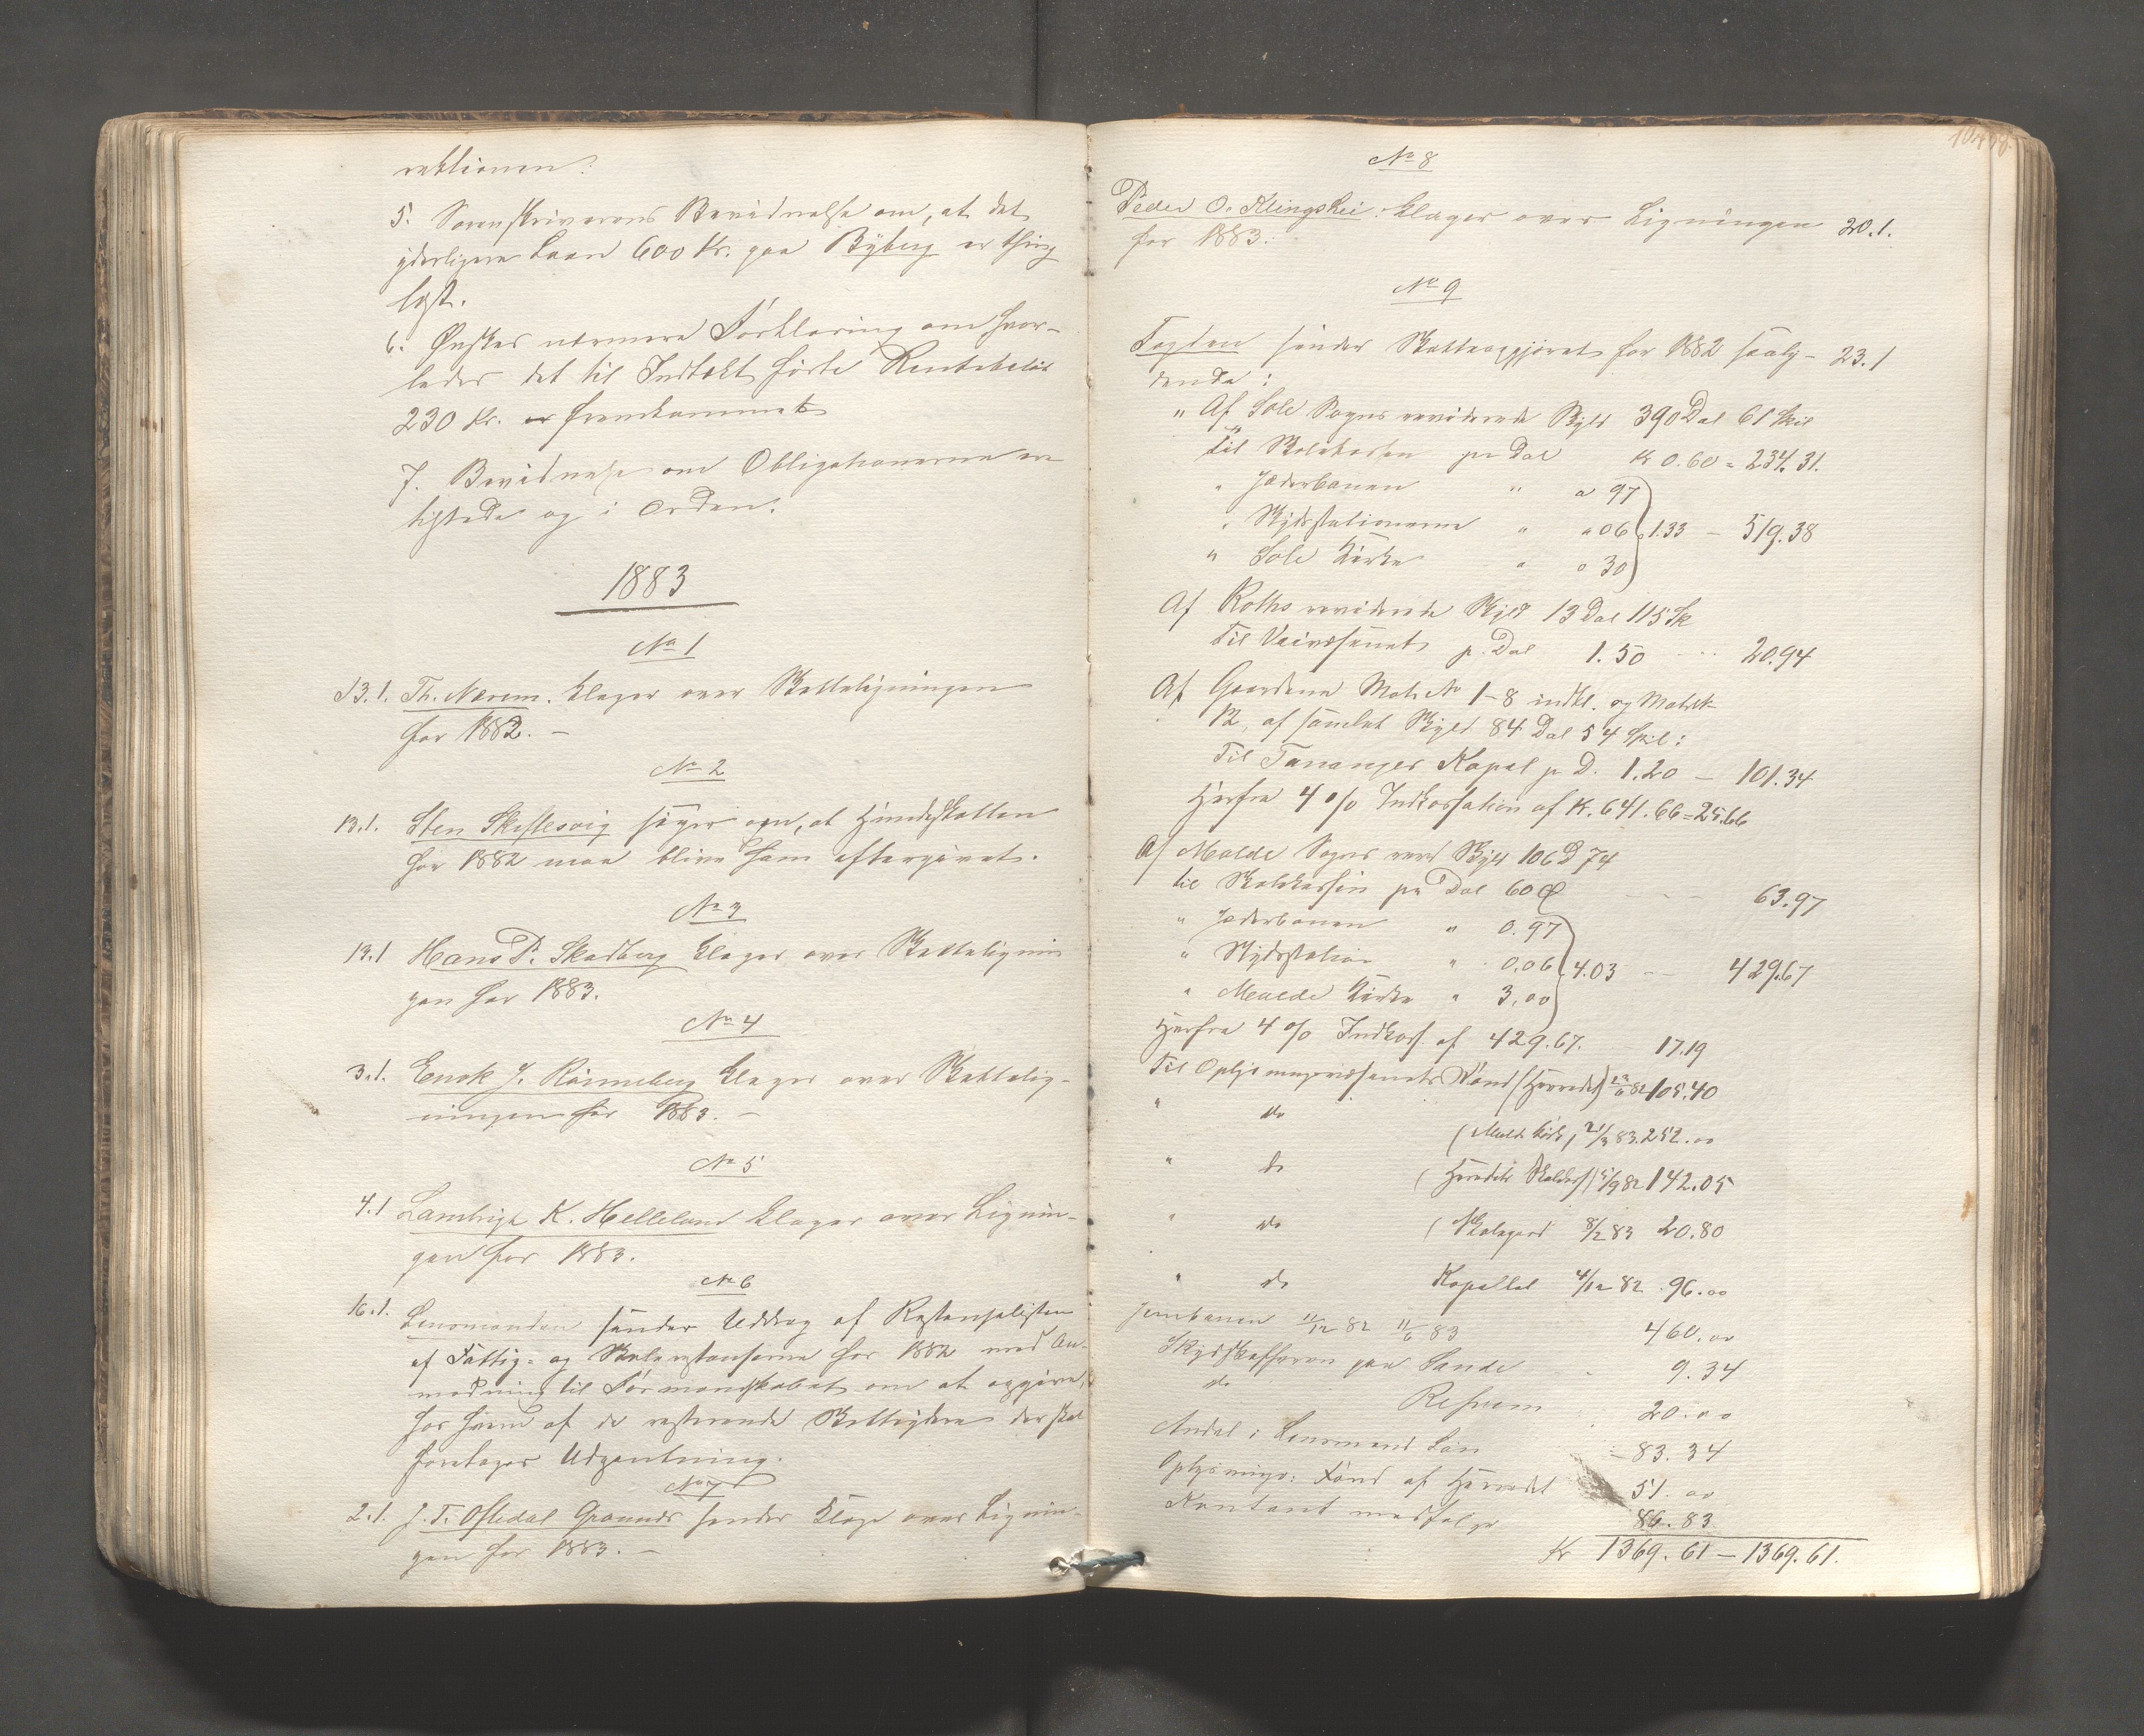 rektionen?
5. Sorenskriverens Bevidnelse om, at det
yderligere Laan 600 Kr. paa Byberg er thing
lyst.
6. Ønskes nærmere Forklaring om hvor-
ledes det til Indtækt førte Rentebeløb
230 Kr. er fremkommet
7. Bevidnelse om Obligationerne ere
tilstede og i Orden.
1883
No 1
13.1. Th. Nærem. klager over Skatteligningen
for 1882. –
No 2
13.1. Sten Skiftesvig søger om, at Hundeskatten
for 1882 maa blive ham eftergivet.
No 3
13.1 Hans P. Skadberg klager over Skattelignin
gen for 1883.
No 4
3.1. Enok J. Rönneberg klager over Skattelig-
ningen for 1883. –
No 5
4.1 Lambrigt K. Helleland klager over Lignin-
gen for 1883.
No 6
16.1. Lensmanden sender Uddrag af Restanselisten
af Fattig- og Skolerestanserne for 1882 med An-
modning til Formandskabet om at opgive,
hos hvem af de resterende Skatteydere der skal
foretages Udpantning.
No 7
2.1. J. T. Oftedal Grannes sender Klage over Lignin-
gen for 1883. –
No 8
Peder O. Klingshei. klager over Ligningen 20.1.
for 1883.
No 9
Fogden sender Skatteopgjøret for 1882 saaly- 23.1
dende:
" Af Sole Sogns reviderede Skyld 390 Dal 61 Skil
til Skolekassen pr Dal Kr 0.60 = 234.31.
" Jæderbanen " a 97
" Skydsstationerne " " 06 1.33 – 519.38
" Sole Kirke " " 30
Af Roths reviderede Skyld 13 Dal 115 Sk
Til Veivæsenet p. Dal 1.50 ... 20.94
Af Gaardene Matr No 1–8 indkl. og Matr
12, af samlet Skyld 84 Dal 54 Skil:
Til Tananger Kapel p D. 1.20 – 101.34
Herfra 4 % Indkassation af Kr. 641.66 = 25.66
Af Malde Sogns rev Skyld 106 D 74
til Skolekassen pr Dal 60 Ø – – – 63.97
" Jæderbanen " 0.97
" Skydsstation " 0,06 4.03 – – 429.67
" Malde Kirke " 3,00
Herfra 4 % Indkas af 429.67. – 17.19
Til Oplysningsvæsenets Fond (Herredet) 6 82 105.40
" do (Malde Kirke) 21/3 83. 252.00
" do (Herredets Skolekasse) 5/9 82 142.05
" do (Skolegaard 8/2 83 20.80
" do Kapellet 4/12 82 . 96.00
Jernbanen 11/12 82 11/6 83 460.00
Skydsskafferen paa Sande 9.34
do Refnem 20.00
Andel i Lensmand Løn – 83.34
Oplysnings: Fond af Herredet 51.00
Kontant medfølge 86.83
Kr 1369.61 – 1369.61.